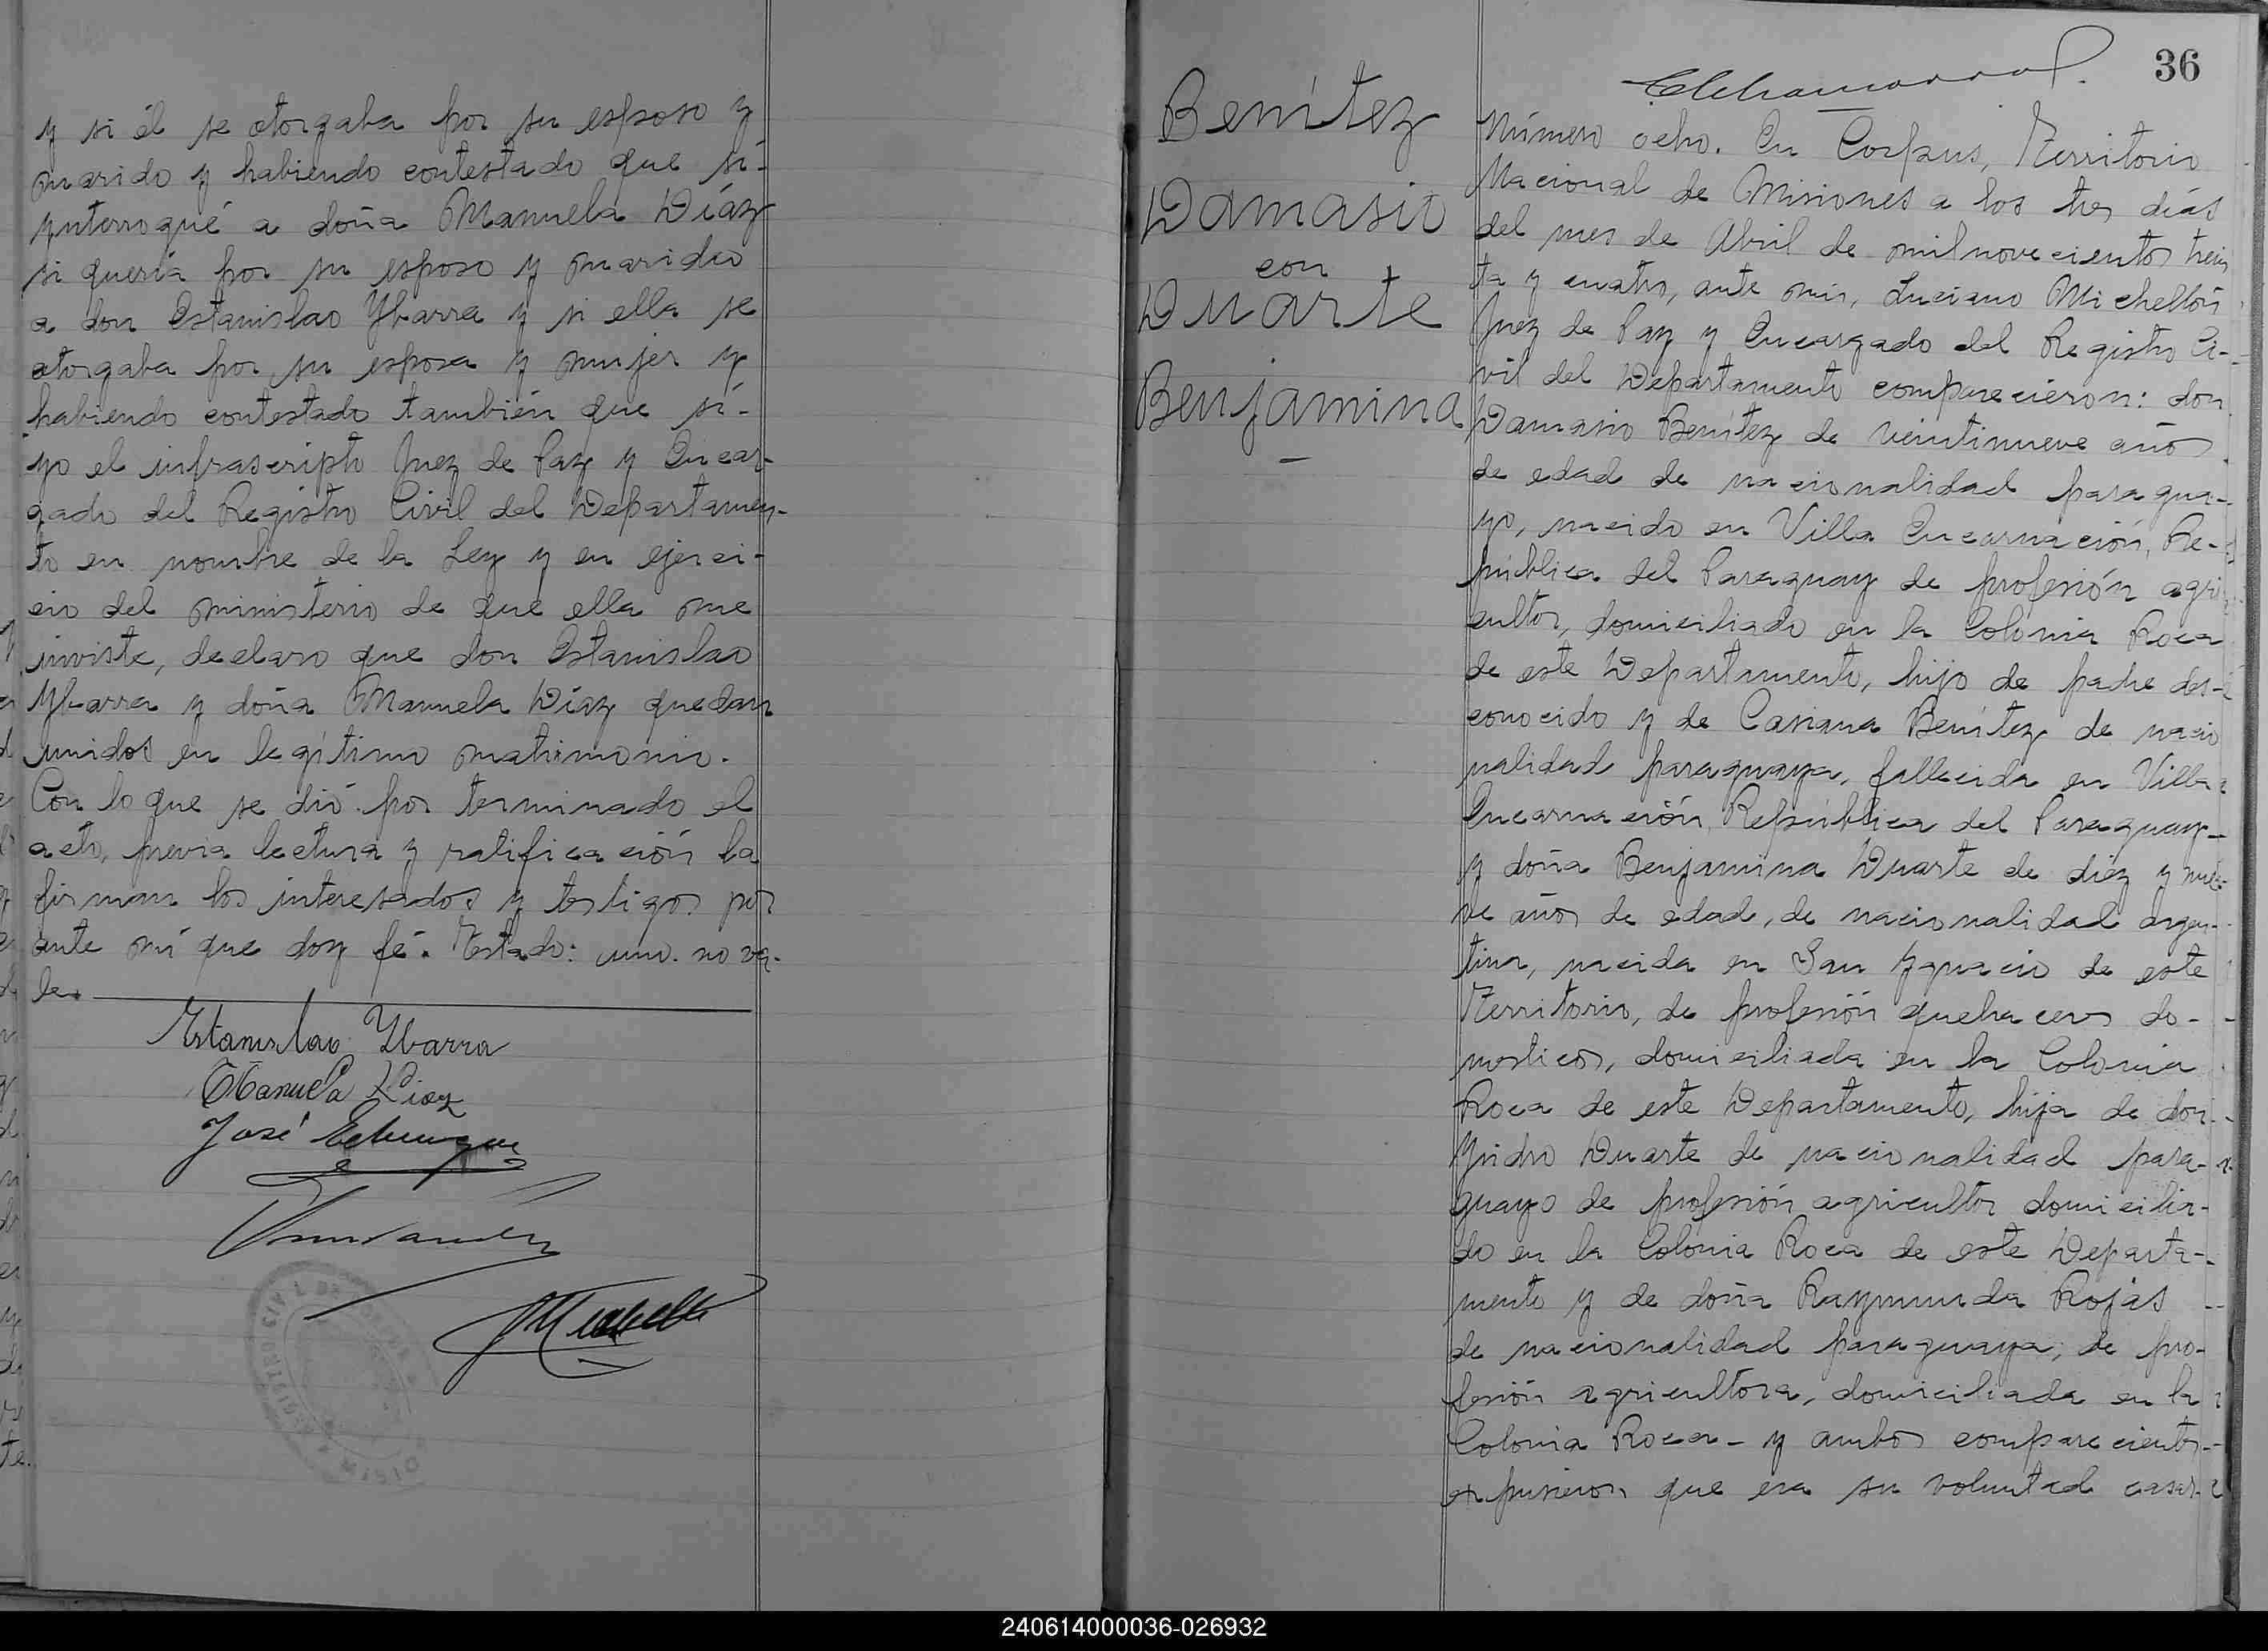 y si él se otorgaba por su esposo y
marido y habiendo contestado que sí-
ynterroqué a doña Manuela Díaz
si quería por su esposo y marido
a don Estanislao Ybarra y si ella se
otorgaba por su esposa y mujer y
habiendo contestado también que sí-
yo el infrascripto Juez de Paz y Encar-
gado del Registro Civil del Departamen-
to en nombre de la Ley y en ejerci-
cio del ministerio de que ella me
inviste, declaro que don Estanislao
Ybarra y doña Manuela Díaz quedan
unidos en legítimo matrimonio.
Con lo que se dió por terminado el
acto, previa lectura y ratificación la
firman los interesados y testigos por
ante mí que doy fé. Testado: uno. no va-
le.
Estanislao Ybarra
Manuela Diaz
José
36
Benítez
Damasio
con
Duarte
Benjamina
Número ocho. En Corpus, Territorio
Nacional de Misiones a los tres días
del mes de Abril de mil novecientos trein
ta y cuatro, ante mi, Luciano Michellón
Juez de Paz y Encargado del Registro Ci-
vil del Departamento comparecieron: don
Damasio Benítez de veintinueve años
de edad de nacionalidad paragua-
yo, nacido en Villa Encarnación, Re-
pública del Paraguay de profesión agri
cultor, domiciliado en la Colonia Roca
de este Departamento, hijo de padre des-
conocido y de Casiana Benítez de nacio
nalidad paraguaya, fallecida en Villa
Encarnación, República del Paraguay-
y doña Benjamina Duarte de diez y nue-
ve años de edad, de nacionalidad argen-
tina, nacida en San Ygnacio de este
Territorio, de profesión quehaceres do-
mesticos, domiciliada en la Colonia
Roca de este Departamento, hija de don
Ysidro Duarte de nacionalidad para-
guayo de profesión agricultor domicilia-
do en la Colonia Roca de este Departa-
mento y de doña Raymunda Rojas
de nacionalidad paraguaya, de pro-
fesión agricultora, domiciliada en la
Colonia Roca- y ambos comparecientes-
expusieron que era su voluntad casar-
240614000036-026932